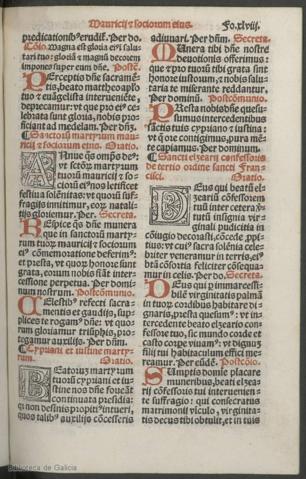 Mauricij ⁊ sociorum eius. Fo.xlviij.
predicationibꝰ erudiſt. Per do.
Cõio. Magna eſt gloria ei⁹ ĩ ſalu
tari tuo: gloriã ⁊ magnũ decorem
impones ſuper eum dñe. Poſtcõ.
PErceptis dñe ſacramẽ-
tis, beato mattheo apľo
tuo ⁊ euãgeliſta interueniẽte,
deprecamur: vt que pro ei⁹ ce-
lebrata ſunt gloria, nobis pro-
ficiant ad medelam. Per dñm.
Sanctorũ martyrum mau
ricij ⁊ sociorum eius. Oratio.
ANnue q̃s omp̃s de⁹:
vt ſctõꝝ martyrum
tuorũ mauricij ⁊ ſo-
cioꝝ ei⁹ nos letificet
feſtiua ſolẽnitas: vt quorũ ſuf-
fragijs innitimur, eoꝝ natali-
tijs gloriemur. Per. Secreta.
REſpice q̃s dñe munera
que in ſanctorũ marty-
rum tuoꝝ mauricij ⁊ ſociorum
ei⁹ cõmemoratione deferim⁹:
et preſta, vt quorũ honore ſunt
grata, eorum nobis fiãt inter-
ceſſione perpetua. Per domi-
num noſtrum. Poſtcõmunio.
CEleſtib⁹ refecti ſacra-
mentis et gaudijs, ſup-
plices te rogam⁹ dñe: vt quo-
rum gloriamur triũphis, pro-
tegamur auxilijs. Per dñm.
Cypriani et iuſtine marty-
rum. Oratio.
BEatoruʒ martyrum
tuorũ cypriani et iu-
ſtine nos dñe foueãt
continuata preſidia:
q̃ non deſinis propiti⁹ intueri,
quos talib⁹ auxilijs cõceſſeris
adiuuari. Per dñm. Secreta.
MUnera tibi dñe noſtre
deuotionis offerimus:
que ⁊ pro tuorũ tibi grata ſint
honore iuſtorum, ⁊ nobis ſalu-
taria te miſerante reddantur.
Per dominũ. Poſtcõmunio.
PReſta nobis dñe queſu-
mus intercedentibus
ſãctis tuis cypriano ⁊ iuſtina:
vt q̃ ore contigimus, pura mẽ-
te capiamus. Per dominum.
Sancti elʒearij confeſſoris
de tertio ordine ſancti Fran-
ciſci. Oratio.
DEus qui beatũ el-
ʒearíũ cõfeſſorem
tuũ inter cetera ꝟ-
tutũ inſignia vir-
ginali pudicitia in
cõiugio decoraſti, cõcede ,ppi-
tius: vt cui⁹ ſacra ſolẽnia cele-
bramur veneramur in terris, ei⁹
dẽ cõſortia feliciter cõſequa-
mur in celis. Per do. Secreta.
DEus qui immarceſſi-
bilẽ virginitatis palmã
in tuoꝝ cordibus habitare di-
gnaris, preſta queſum⁹: vt in-
tercedente beato elʒeario con-
feſſore tuo, ſic mundo corde et
caſto corpe viuam⁹: vt dignuʒ
filij tui habitaculum effici me-
reamur. Per eũdẽ. Poſtcõio.
SUmptis domĩe placare
muneribus, beati elʒea-
rij cõfeſſoris tui interueniẽn-
te ſuffragio: qui conſecratus
matrimonij vĩculo, virginita-
tis decus tibi obtulit, et in tuis
Biblioteca de Galicia